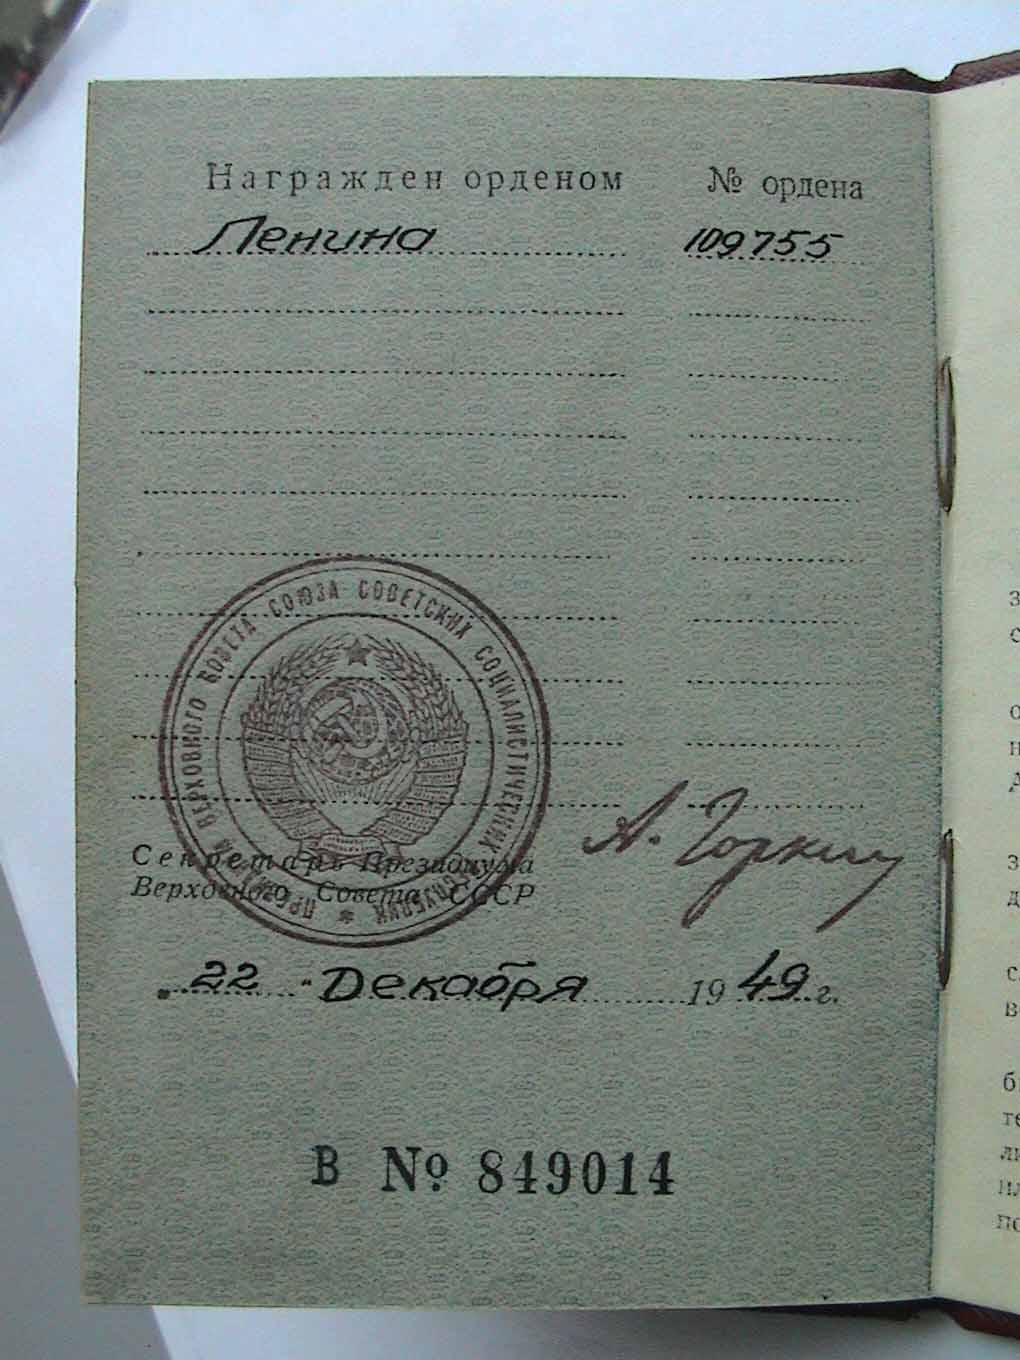 Награжден орденом № ордена
Ленина 109755
ПРЕЗИДИУМ ВЕРХОВНОГО СОВЕТА СОЮЗА СОВЕТСКИХ СОЦИАЛИСТИЧЕСКИХ РЕСПУБЛИК *
Секретарь Президиума
Верховного Совета СССР
А. Горкин
"22" Декабря 1949 г.
В № 849014